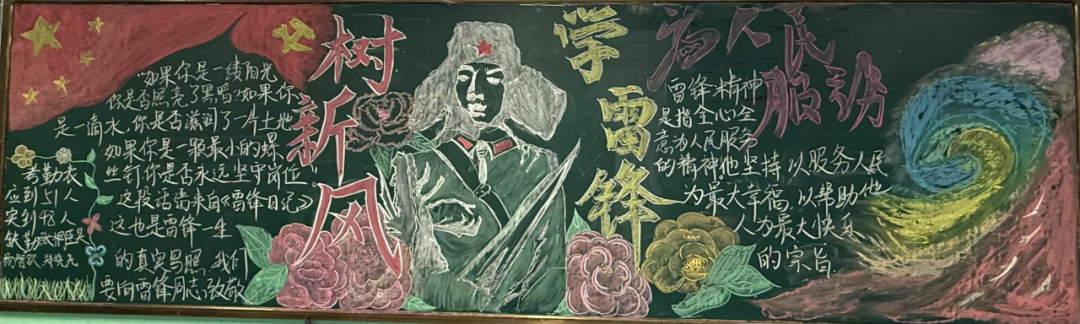 "如果你是一缕阳光
你是否照亮了黑暗?如果你
是一滴水,你是否滋润了一片土地
如果你是一颗最小的螺
丝钉你是否永远坚守岗位"
这段话出来自《雷锋日记》
这也是雷锋一生
的真实写照,我们
要向雷锋同志致敬
考勤表
应到51人
实到48人
缺勤
树新风
学雷锋
为人民服务
雷锋精神
是指全心全
意为人民服务
的精神他坚持以服务人民
为最大幸福,以帮助他
人为最大快乐
的宗旨